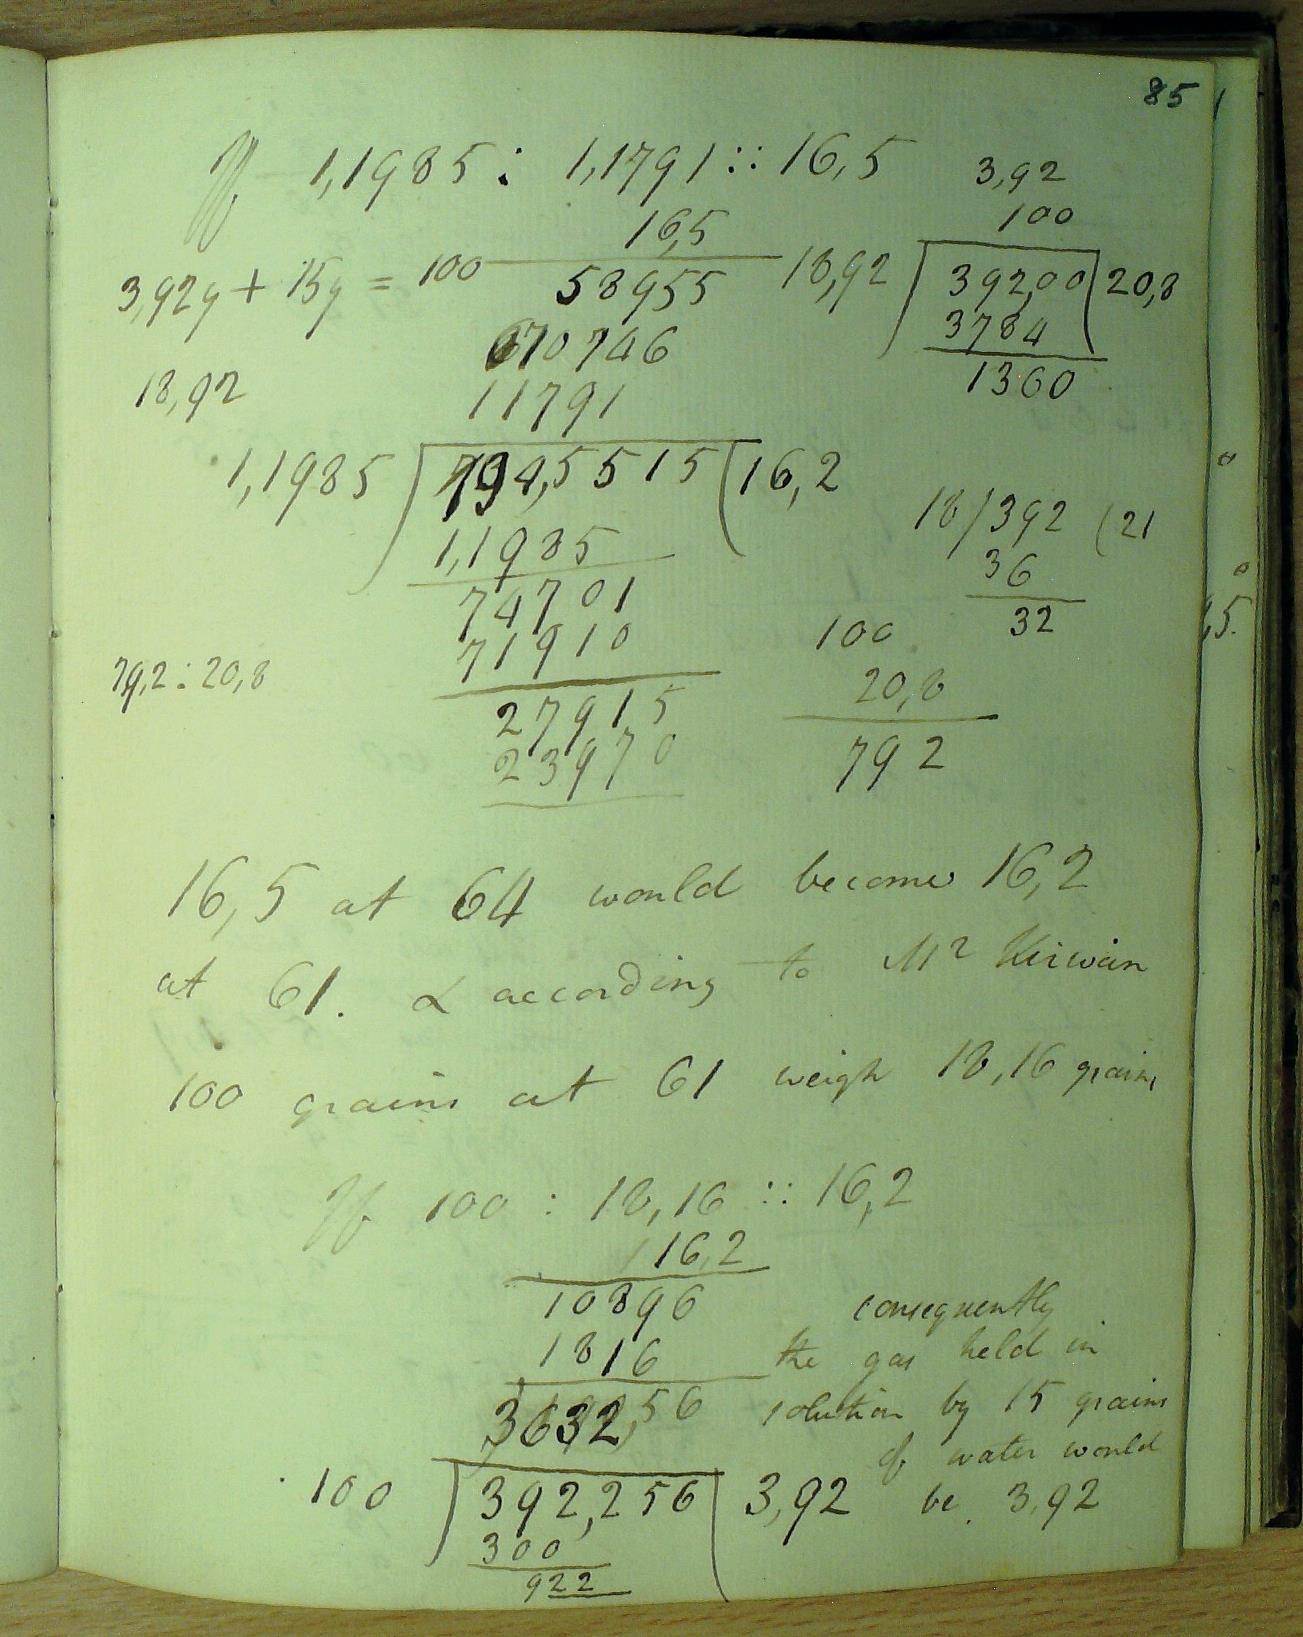 85
If 1,1985 : 1,1791 :: 16,5
16,5
3,92y + 15y = 100
58955
70746
18,92
11791
1,1985 194,5515 (16,2
1,1985
74701
71910
27915
23970
3,92
100
18,92 392,00 (20,8
3784
1360
18/392 (21
36
32
100
20,8
792
79,2 : 20,8
16,5 at 64 would become 16,2
at 61. & according to Mr Kirwan
100 grains at 61 weigh 18,16 grains
If 100 : 18,16 :: 16,2
16,2
10896
1816
3632,56
100 392,256 3,92
300
922
consequently
the gas held in
solution by 15 grains
of water would
be 3,92